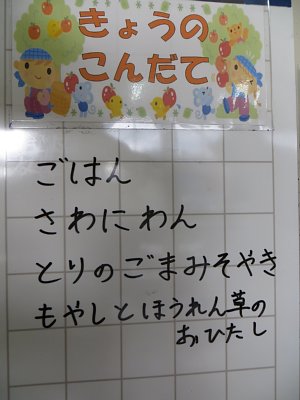 きょうの
こんだて
ごはん
さわにわん
とりのごまみそやき
もやしとほうれん草の
おひたし